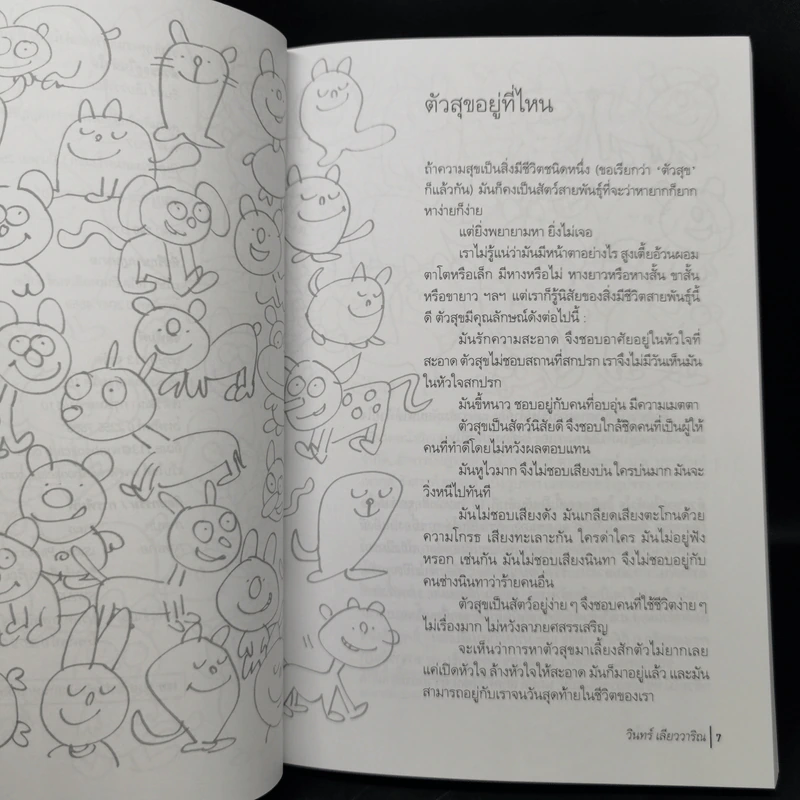 ตัวสุขอยู่ที่ไหน
ถ้าความสุขเป็นสิ่งมีชีวิตชนิดหนึ่ง (ขอเรียกว่า 'ตัวสุข'
ก็แล้วกัน) มันก็คงเป็นสัตว์สายพันธุ์ที่จะว่าหายากก็ยาก
หาง่ายก็ง่าย
แต่ยิ่งพยายามหา ยิ่งไม่เจอ
เราไม่รู้แน่ว่ามันมีหน้าตาอย่างไร สูงเตี้ยอ้วนผอม
ตาโตหรือเล็ก มีหางหรือไม่ หางยาวหรือหางสั้น ขาสั้น
หรือขายาว ฯลฯ แต่เราก็รู้นิสัยของสิ่งมีชีวิตสายพันธุ์นี้
ดี ตัวสุขมีคุณลักษณ์ดังต่อไปนี้ :
มันรักความสะอาด จึงชอบอาศัยอยู่ในหัวใจที่
สะอาด ตัวสุขไม่ชอบสถานที่สกปรก เราจึงไม่มีวันเห็นมัน
ในหัวใจสกปรก
มันขี้หนาว ชอบอยู่กับคนที่อบอุ่น มีความเมตตา
ตัวสุขเป็นสัตว์นิสัยดี จึงชอบใกล้ชิดคนที่เป็นผู้ให้
คนที่ทำดีโดยไม่หวังผลตอบแทน
มันหูไวมาก จึงไม่ชอบเสียงบ่น ใครบ่นมาก มันจะ
วิ่งหนีไปทันที
มันไม่ชอบเสียงดัง มันเกลียดเสียงตะโกนด้วย
ความโกรธ เสียงทะเลาะกัน ใครด่าใคร มันไม่อยู่ฟัง
หรอก เช่นกัน มันไม่ชอบเสียงนินทา จึงไม่ชอบอยู่กับ
คนช่างนินทาว่าร้ายคนอื่น
ตัวสุขเป็นสัตว์อยู่ง่าย ๆ จึงชอบคนที่ใช้ชีวิตง่าย ๆ
ไม่เรื่องมาก ไม่หวังลาภยศสรรเสริญ
จะเห็นว่าการหาตัวสุขมาเลี้ยงสักตัวไม่ยากเลย
แค่เปิดหัวใจ ล้างหัวใจให้สะอาด มันก็มาอยู่แล้ว และมัน
สามารถอยู่กับเราจนวันสุดท้ายในชีวิตของเรา
วินทร์ เลียววาริณ | 7